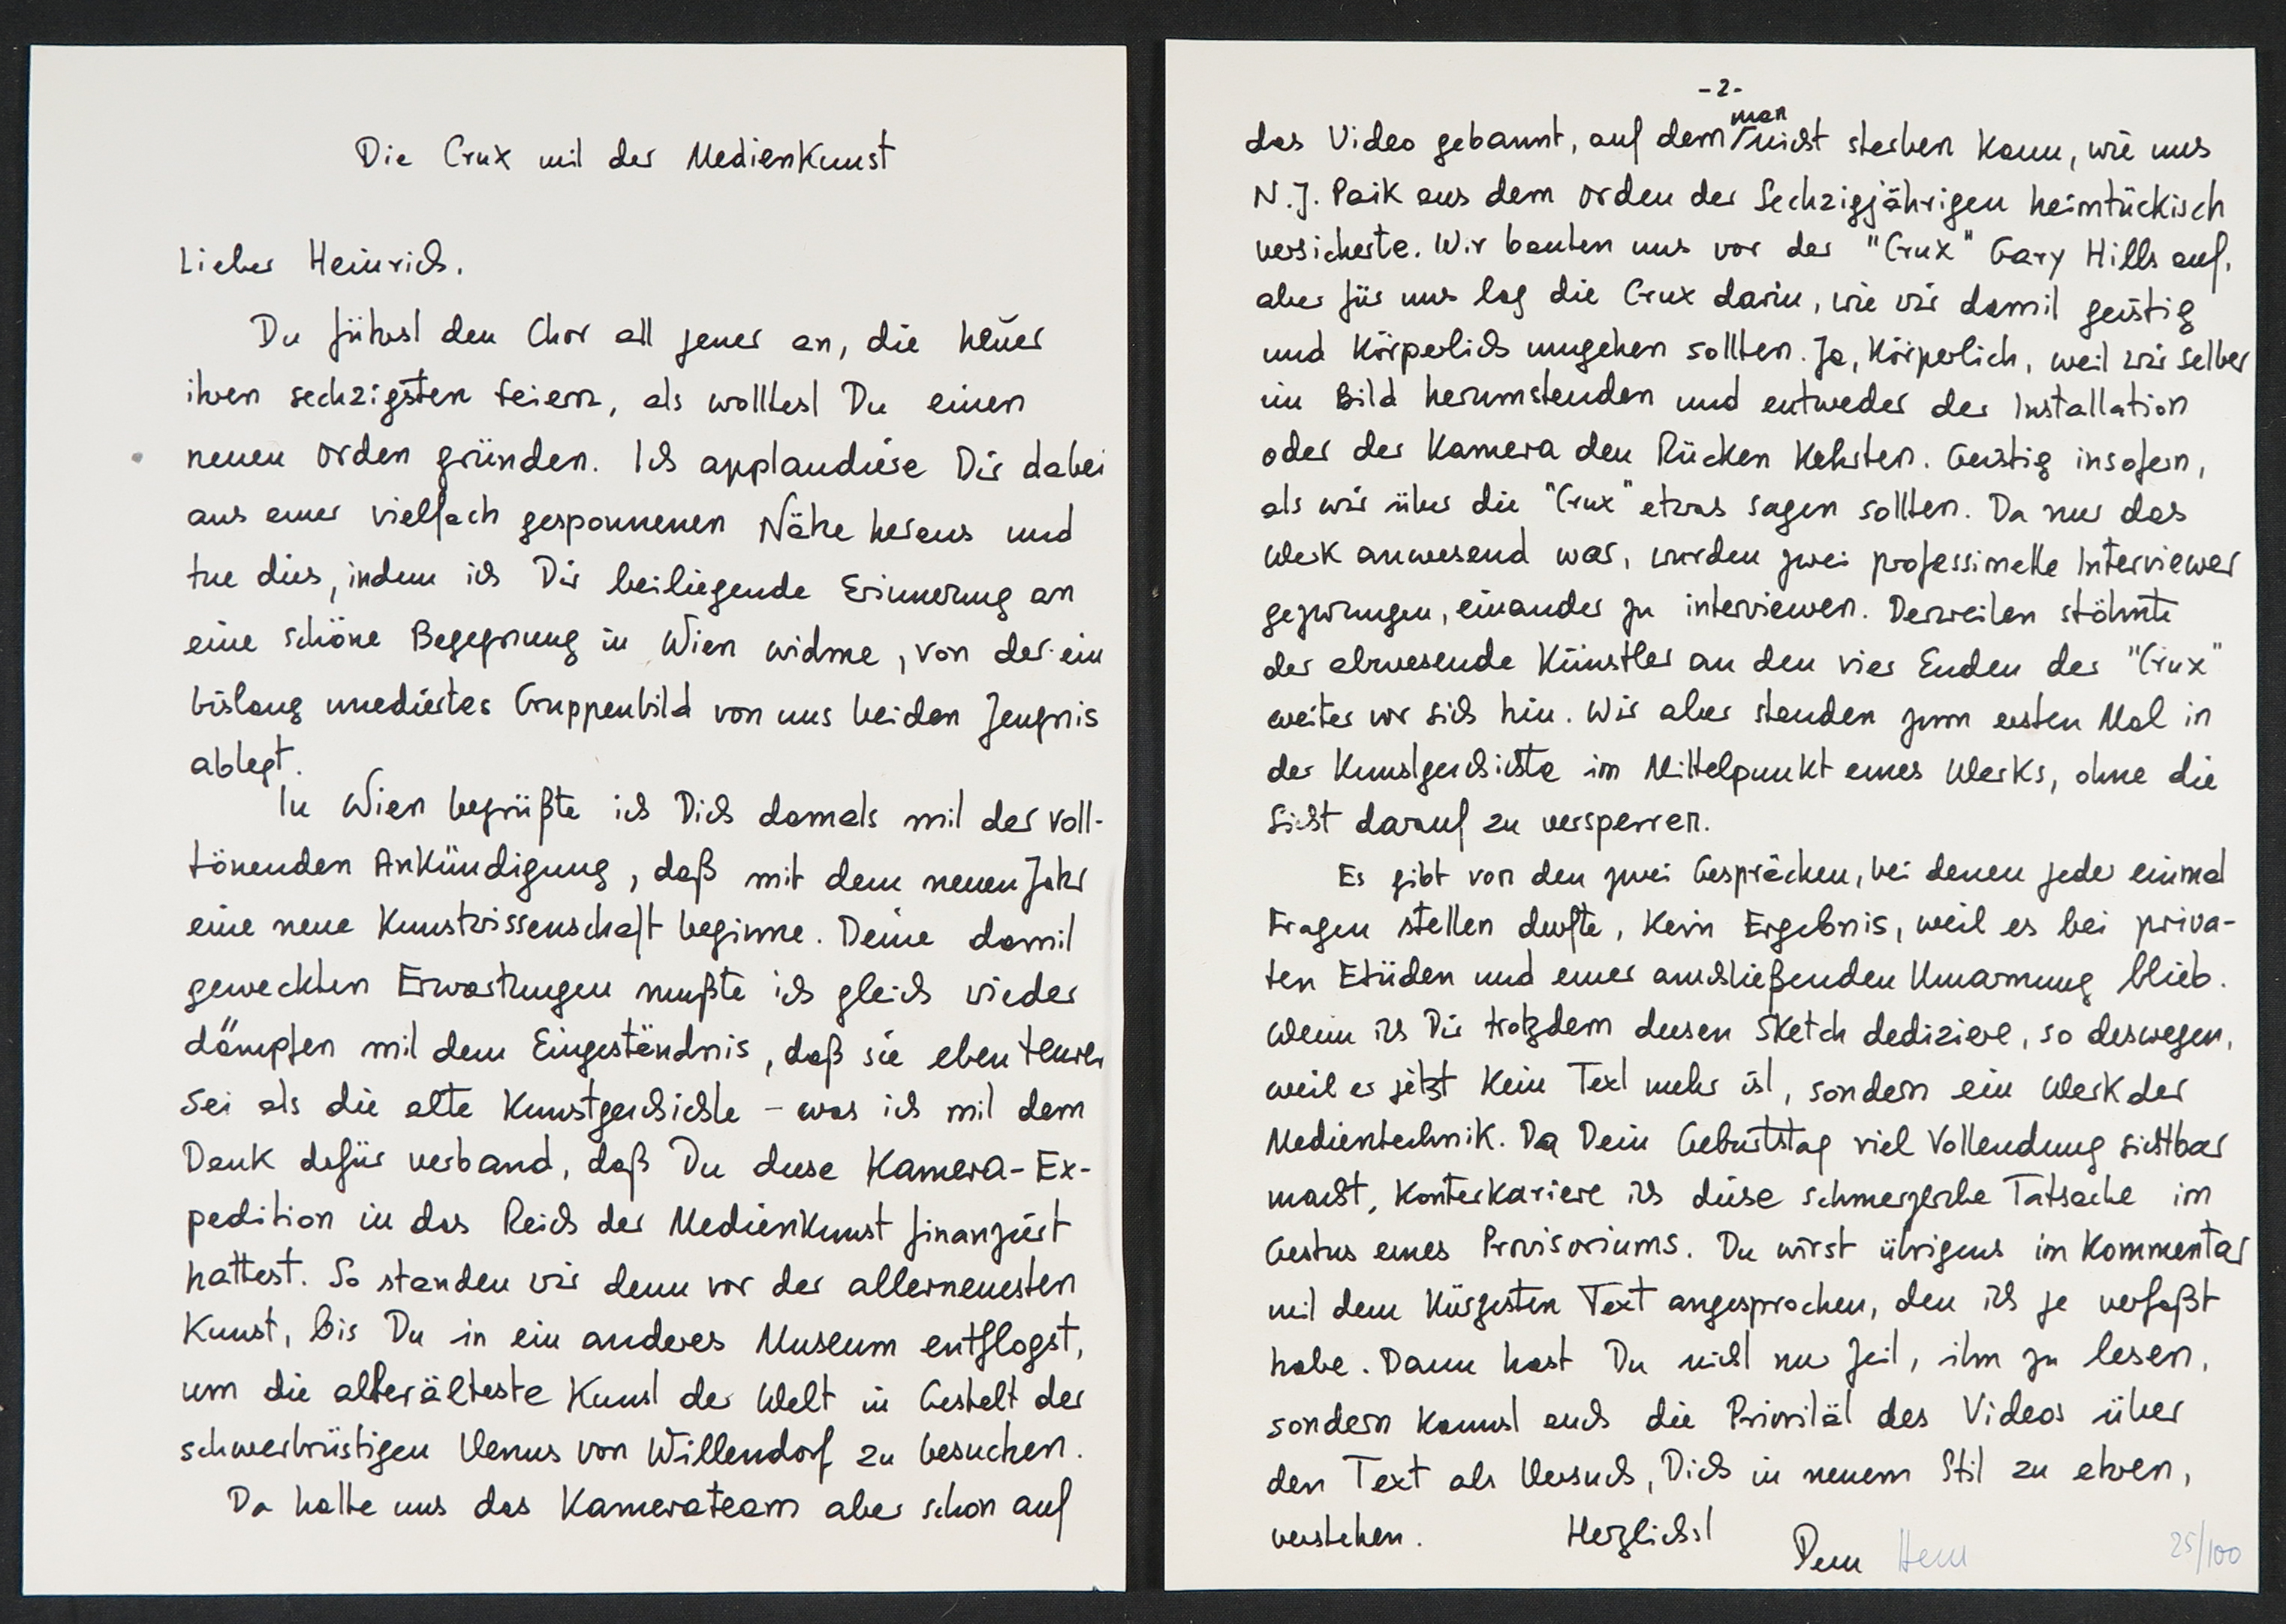 Die Crux mit der Medienkunst
Lieber Heinrich.
Du führst den Chor all jener an, die heuer
ihren sechzigsten feiern, als wolltest Du einen
neuen Orden gründen. Ich applaudiere Dir dabei
aus einer vielfach gesponnenen Nähe heraus und
tue dies, indem ich Dir beiliegende Erinnerung an
eine schöne Begegnung in Wien widme, von der ein
bislang unediertes Gruppenbild von uns beiden Zeugnis
ablegt.
In Wien begrüßte ich Dich damals mit der voll-
tönenden Ankündigung, daß mit dem neuen Jahr
eine neue Kunstwissenschaft beginne. Deine damit
geweckten Erwartungen mußte ich gleich wieder
dämpfen mit dem Eingeständnis, daß sie eben teurer
sei als die alte Kunstgeschichte – was ich mit dem
Dank dafür verband, daß Du diese Kamera-Ex-
pedition in das Reich der Medienkunst finanziert
hattest. So standen wir denn vor der allerneuesten
Kunst, bis Du in ein anderes Museum entflogst,
um die allerälteste Kunst der Welt in Gestalt der
schwerbrüstigen Venus von Willendorf zu besuchen.
Da hatte uns das Kamerateam aber schon auf
-2-
das Video gebannt, auf dem man nicht sterben kann, wie uns
N.J. Paik aus dem Orden der Sechzigjährigen heimtückisch
versicherte. Wir bauten uns vor der "Crux" Gary Hills auf,
aber für uns lag die Crux darin, wie wir damit geistig
und körperlich umgehen sollten. Ja, körperlich, weil wir selber
im Bild herumstanden und entweder der Installation
oder der Kamera den Rücken kehrten. Geistig insofern,
als wir über die "Crux" etwas sagen sollten. Da nur das
Werk anwesend war, wurden zwei professionelle Interviewer
gezwungen, einander zu interviewen. Derweilen stöhnte
der abwesende Künstler an den vier Enden der "Crux"
weiter vor sich hin. Wir aber standen zum ersten Mal in
der Kunstgeschichte im Mittelpunkt eines Werks, ohne die
Sicht darauf zu versperren.
Es gibt von den zwei Gesprächen, bei denen jeder einmal
Fragen stellen durfte, kein Ergebnis, weil es bei priva-
ten Etüden und einer anschließenden Umarmung blieb.
Wenn ich Dir trotzdem diesen Sketch dediziere, so deswegen,
weil er jetzt kein Text mehr ist, sondern ein Werk der
Medientechnik. Da Dein Geburtstag viel Vollendung sichtbar
macht, konterkariere ich diese schmerzliche Tatsache im
Gestus eines Provisoriums. Du wirst übrigens im Kommentar
mit dem kürzesten Text angesprochen, den ich je verfaßt
habe. Dann hast Du nicht nur Zeit, ihn zu lesen,
sondern kannst auch die Priorität des Videos über
den Text als Versuch, Dich in neuem Stil zu ehren,
verstehen. Herzlichst
Dein
25/100